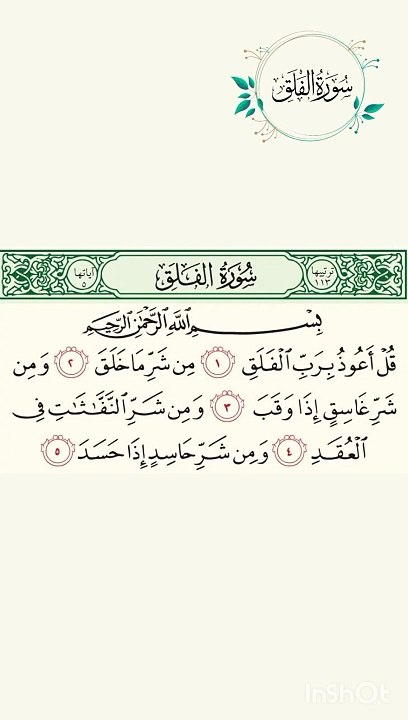 سُورَةُ الفَلَقِ
ترتيبها ١١٣ سُورَةُ الفَلَقِ آياتها ٥
بِسْمِ ٱللَّهِ ٱلرَّحْمَٰنِ ٱلرَّحِيمِ
قُلْ أَعُوذُ بِرَبِّ ٱلْفَلَقِ ١ مِن شَرِّ مَا خَلَقَ ٢ وَمِن
شَرِّ غَاسِقٍ إِذَا وَقَبَ ٣ وَمِن شَرِّ ٱلنَّفَّٰثَٰتِ فِى
ٱلْعُقَدِ ٤ وَمِن شَرِّ حَاسِدٍ إِذَا حَسَدَ ٥
InShOt